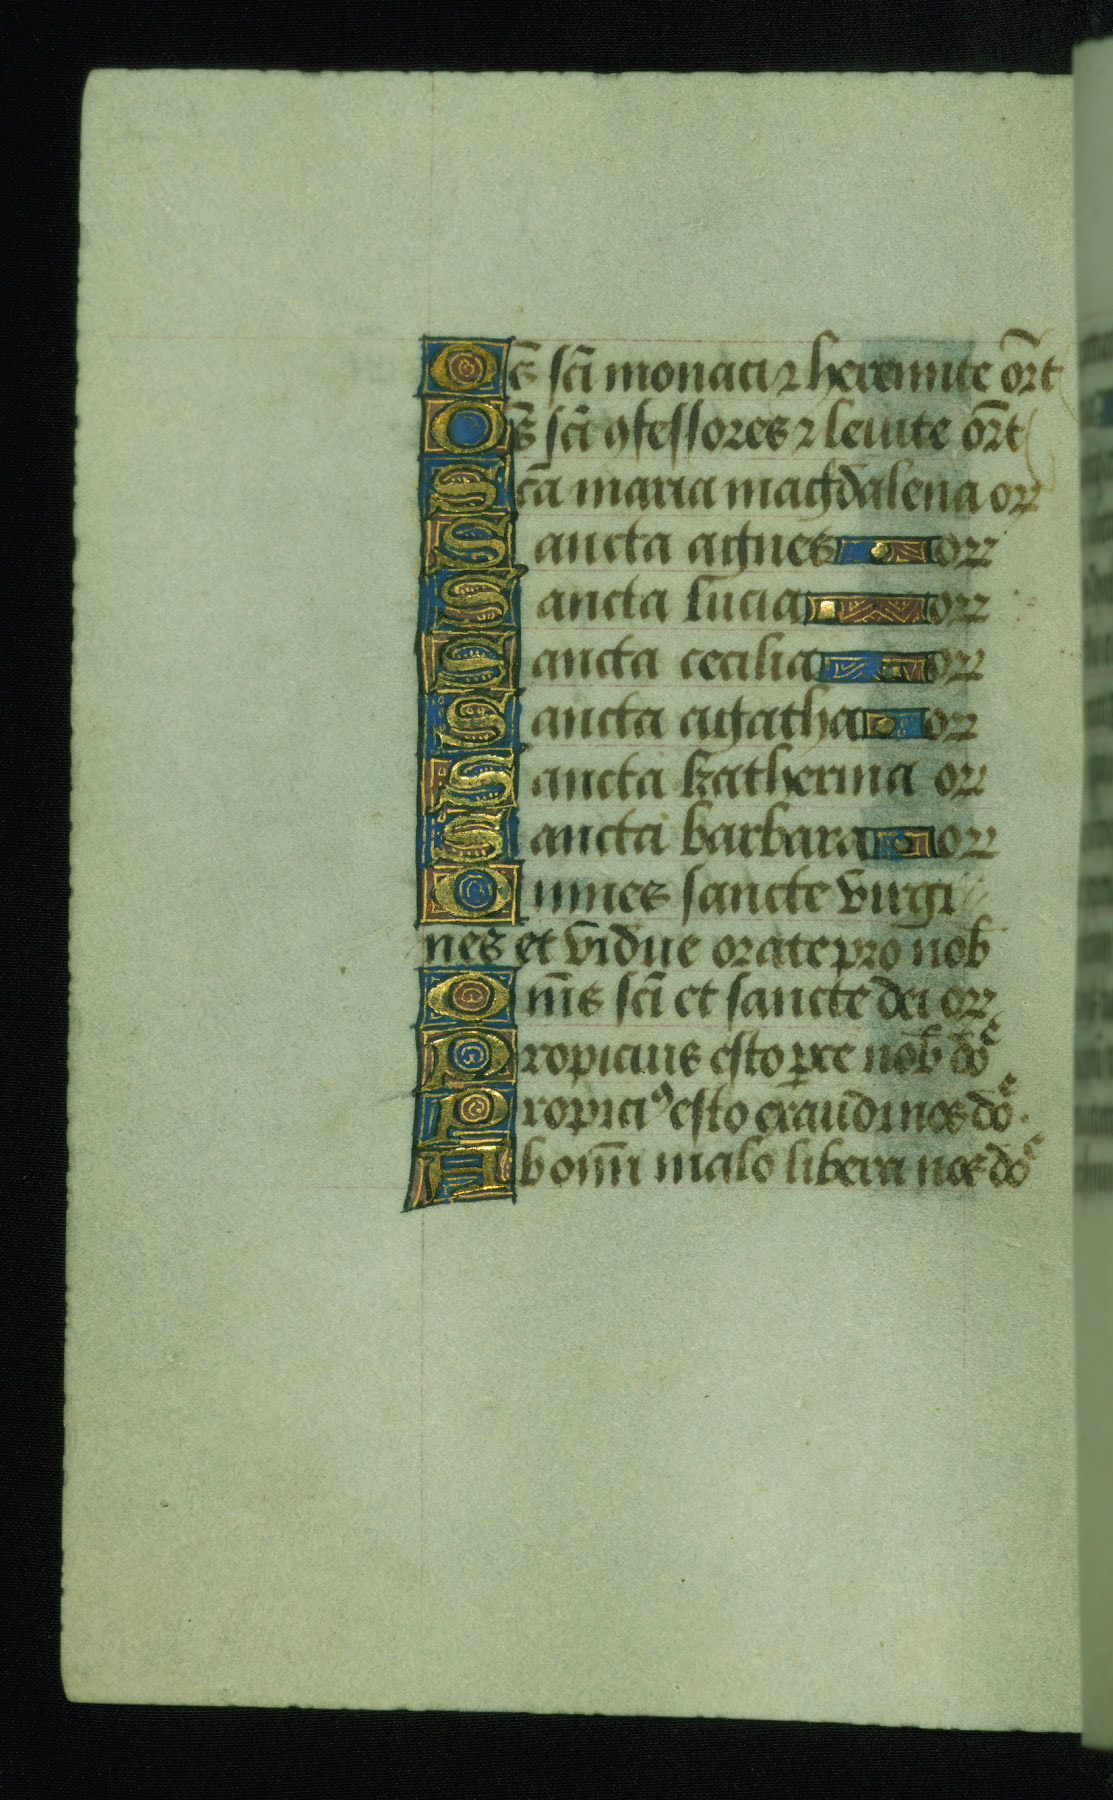 Os̄ sc̄i monaci ⁊ heremite or̄t
Os̄ sc̄i ꝯfessores ⁊ leuite or̄t
Sc̄a maria magdalena or
Sancta agnes or
Sancta lucia or
Sancta cecilia or
Sancta agatha or
Sancta katherina or
Sancta barbara or
Omnes sancte virgi
nes et vidue orate pro nob
Om̄s sc̄i et sancte dei or
Propicius esto ꝑce nob do᷒ᵉ
Propiciꝰ esto exaudi nos doᵉ
Ab om̄i malo libera nos doᵉ